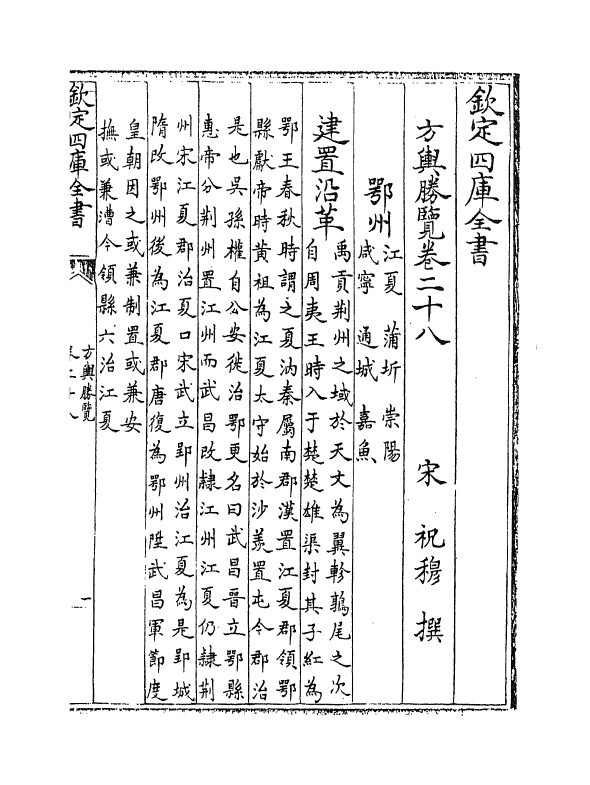 欽定四庫全書
方輿勝覽卷二十八　宋　祝穆　撰
鄂州
江夏　蒲圻　崇陽
咸寧　通城　嘉魚
建置沿革
禹貢荆州之域於天文為翼軫鶉尾之次
自周夷王時入于楚楚雄渠封其子紅為
鄂王春秋時謂之夏汭秦屬南郡漢置江夏郡領鄂
縣獻帝時黄祖為江夏太守始於沙羨置屯今郡治
是也吴孫權自公安徙治鄂更名曰武昌晉立鄂縣
惠帝分荆州置江州而武昌改隷江州江夏仍隷荆
州宋江夏郡治夏口宋武立郢州治江夏為是郢城
隋改鄂州後為江夏郡唐復為鄂州陞武昌軍節度
皇朝因之或兼制置或兼安
撫或兼漕今領縣六治江夏
欽定四庫全書
方輿勝覽
卷二十八
一